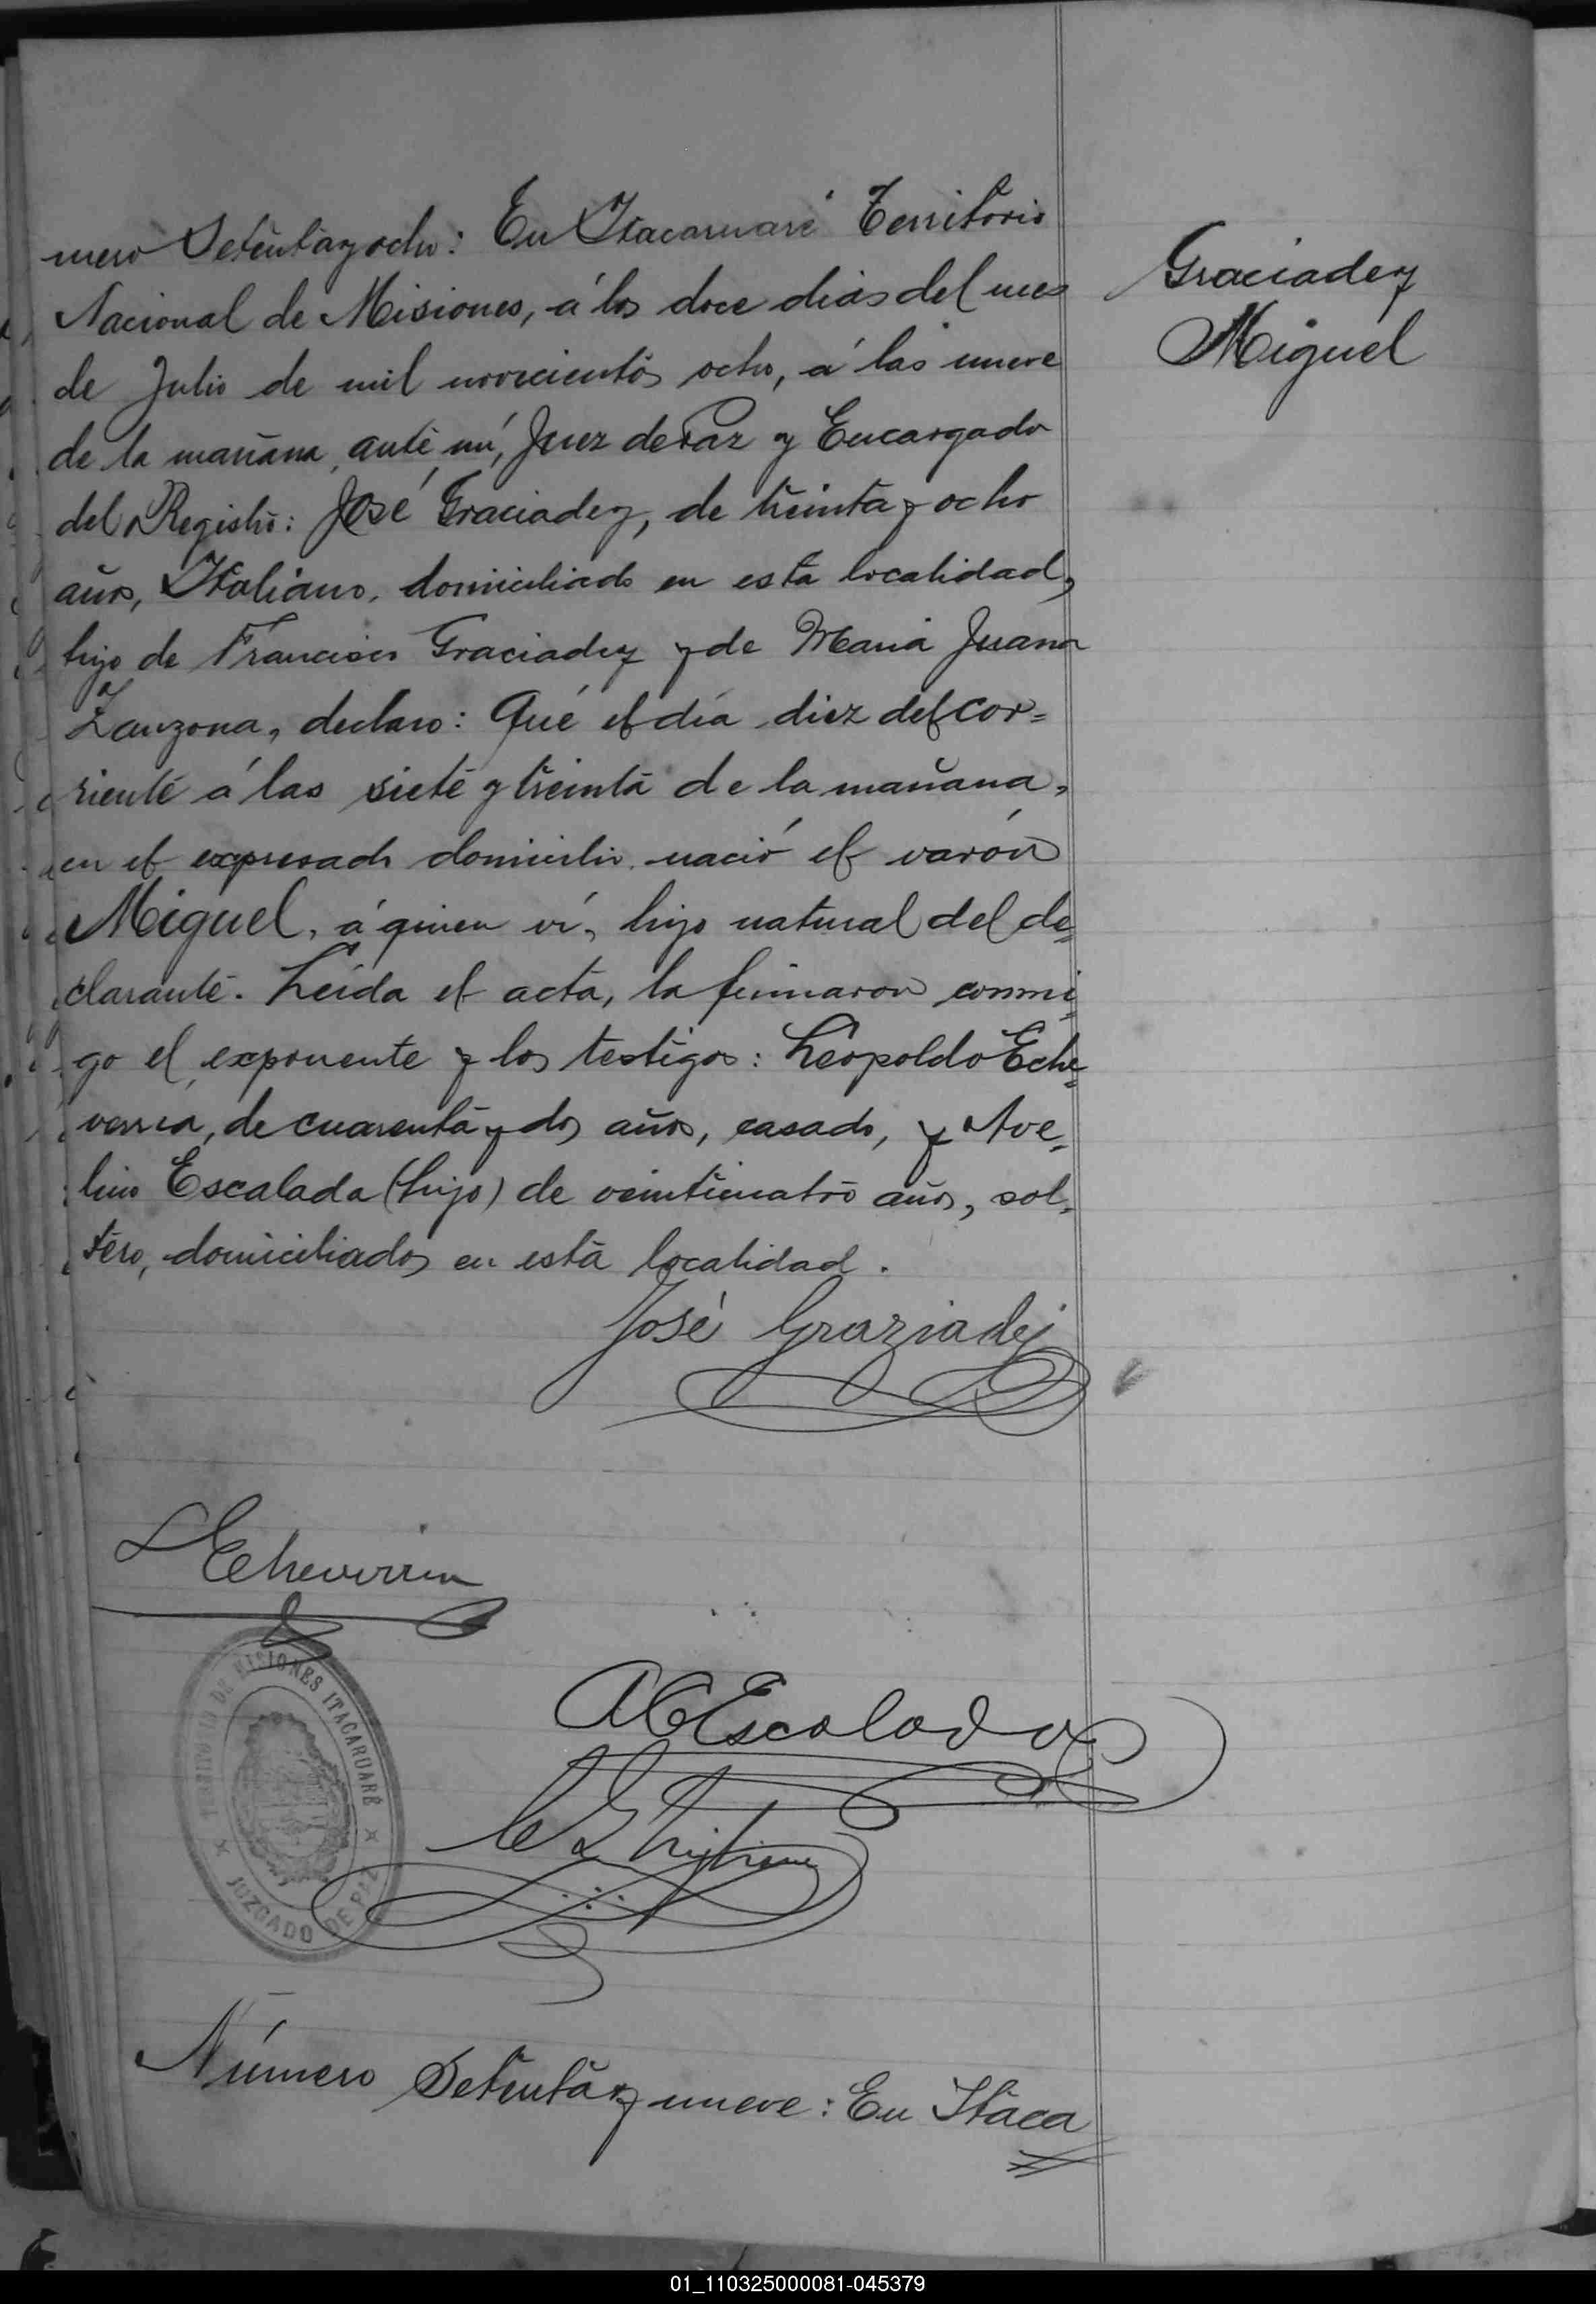 mero Setentayocho: En Itacaruaré Territorio
Nacional de Misiones, á los doce dias del mes
de Julio de mil novecientos ocho, á las nueve
de la mañana, ante mí, Juez de Paz y Encargado
del Registro: José Graciadey, de treinta y ocho
años, Italiano, domiciliado en esta localidad,
hijo de Francisco Graciadey y de Maria Juana
Zanzona, declaro: Que el día diez del cor=
riente á las siete y treinta de la mañana,
en el expresado domicilio nació el varón
Miguel, á quien ví, hijo natural del de=
clarante. Leida el acta, la firmaron conmi=
go el exponente y los testigos: Leopoldo Eche=
verria, de cuarenta y dos años, casado, y Ave=
lino Escalada (hijo) de veinticuatro años, sol=
tero, domiciliados en esta localidad.
José Graziadej
L Echeverria
A C Escalada
TERRITORIO DE MISIONES ITACARUARÉ
JUZGADO DE PAZ
Número Setenta y nueve: En Itaca
Graciadey
Miguel
01_110325000081-045379